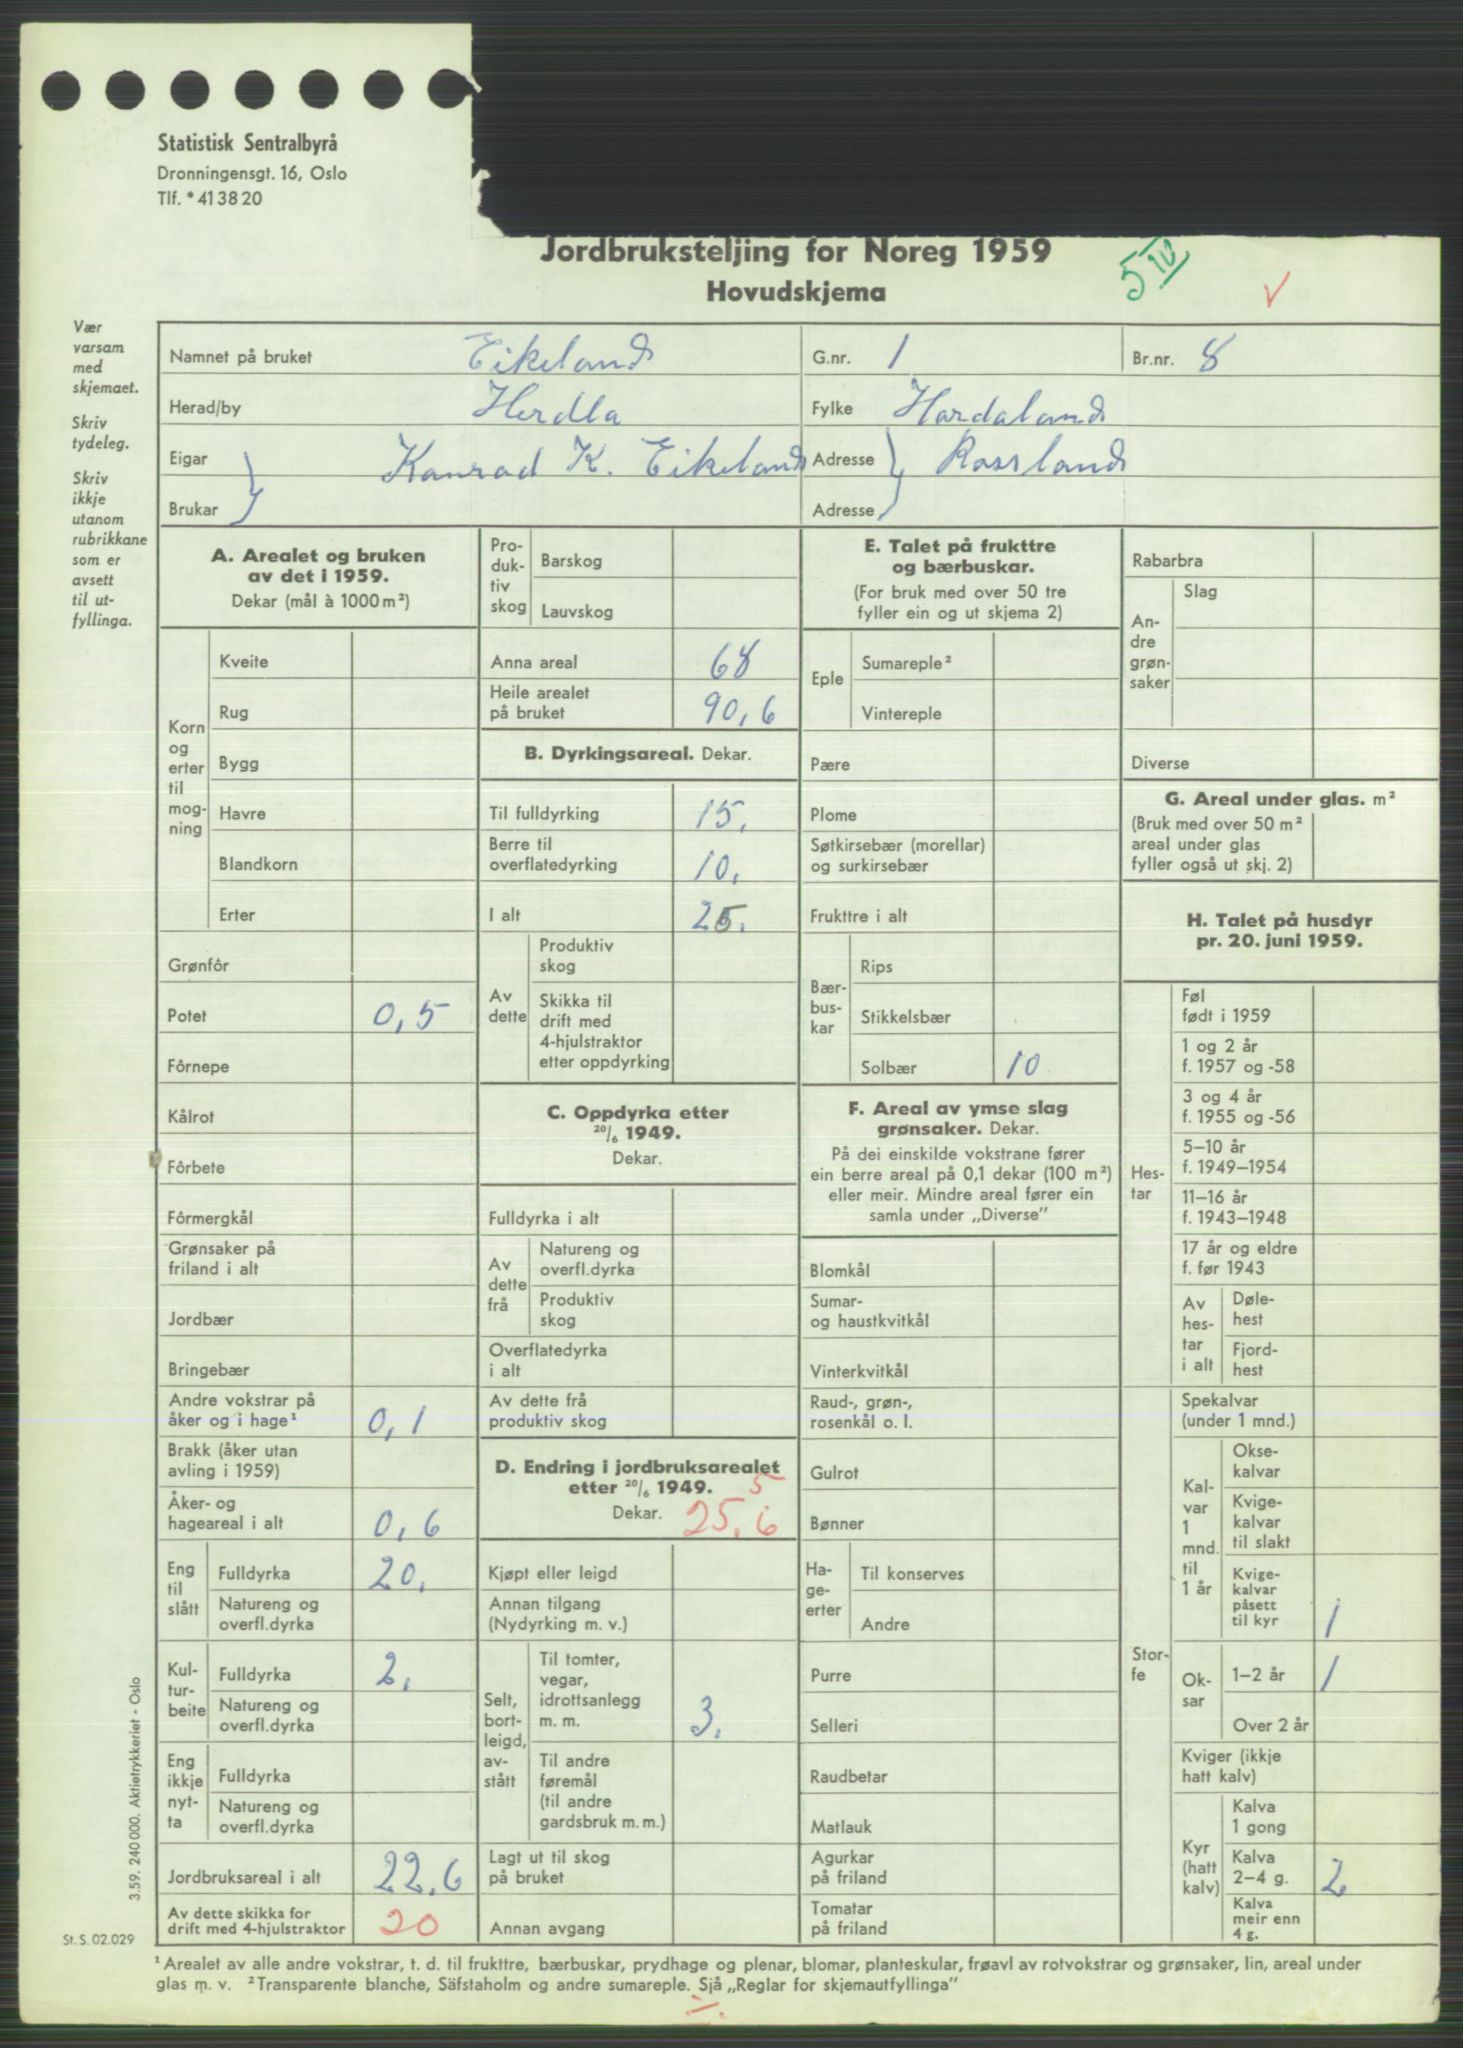 Statistisk Sentralbyrå
Dronningensgt. 16, Oslo
Tlf. * 41 38 20
Jordbruksteljing for Noreg 1959
Hovudskjema
5 IV
V
Vær
varsam
med
skjemaet.
Skriv
tydeleg.
Skriv
ikkje
utanom
rubrikkane
som er
avsett
til ut-
fyllinga.
Namnet på bruket Eikeland G.nr. 1 Br.nr. 8
Herad/by Herdla Fylke Hordaland
Eigar Konrad K. Eikeland Adresse Rossland
Brukar Adresse
A. Arealet og bruken
av det i 1959.
Dekar (mål à 1000 m²)
Korn
og
erter
til
mog-
ning
Kveite
Rug
Bygg
Havre
Blandkorn
Erter
Grønfôr
Potet 0,5
Fôrnepe
Kålrot
Fôrbete
Fôrmergkål
Grønsaker på
friland i alt
Jordbær
Bringebær
Andre vokstrar på
åker og i hage¹ 0,1
Brakk (åker utan
avling i 1959)
Åker- og
hageareal i alt 0,6
Eng
til
slått
Fulldyrka 20.
Natureng og
overfl.dyrka
Kul-
tur-
beite
Fulldyrka 2.
Natureng og
overfl.dyrka
Eng
ikkje
nyt-
ta
Fulldyrka
Natureng og
overfl.dyrka
Jordbruksareal i alt 22,6
Av dette skikka for
drift med 4-hjulstraktor 20
Pro-
duk-
tiv
skog
Barskog
Lauvskog
Anna areal 68
Heile arealet
på bruket 90,6
B. Dyrkingsareal. Dekar.
Til fulldyrking 15.
Berre til
overflatedyrking 10.
I alt 25.
Av
dette
Produktiv
skog
Skikka til
drift med
4-hjulstraktor
etter oppdyrking
C. Oppdyrka etter
20/6 1949.
Dekar.
Fulldyrka i alt
Av
dette
frå
Natureng og
overfl.dyrka
Produktiv
skog
Overflatedyrka
i alt
Av dette frå
produktiv skog
D. Endring i jordbruksarealet
etter 20/6 1949. 5
Dekar. 25,6
Kjøpt eller leigd
Annan tilgang
(Nydyrking m. v.)
Selt,
bort-
leigd,
av-
stått
Til tomter,
vegar,
idrottsanlegg
m. m. 3.
Til andre
føremål
(til andre
gardsbruk m. m.)
Lagt ut til skog
på bruket
Annan avgang
E. Talet på frukttre
og bærbuskar.
(For bruk med over 50 tre
fyller ein og ut skjema 2)
Eple
Sumareple²
Vintereple
Pære
Plome
Søtkirsebær (morellar)
og surkirsebær
Frukttre i alt
Bær-
bus-
kar
Rips
Stikkelsbær
Solbær 10
F. Areal av ymse slag
grønsaker. Dekar.
På dei einskilde vokstrane fører
ein berre areal på 0,1 dekar (100 m²)
eller meir. Mindre areal fører ein
samla under „Diverse”
Blomkål
Sumar-
og haustkvitkål
Vinterkvitkål
Raud-, grøn-,
rosenkål o. l.
Gulrot
Bønner
Ha-
ge-
erter
Til konserves
Andre
Purre
Selleri
Raudbetar
Matlauk
Agurkar
på friland
Tomatar
på friland
Rabarbra
An-
dre
grøn-
saker
Slag
Diverse
G. Areal under glas. m²
(Bruk med over 50 m²
areal under glas
fyller også ut skj. 2)
H. Talet på husdyr
pr. 20. juni 1959.
Hes-
tar
Føl
født i 1959
1 og 2 år
f. 1957 og -58
3 og 4 år
f. 1955 og -56
5–10 år
f. 1949–1954
11–16 år
f. 1943–1948
17 år og eldre
f. før 1943
Av
hes-
tar
i alt
Døle-
hest
Fjord-
hest
Stor-
fe
Spekalvar
(under 1 mnd.)
Kal-
var
1
mnd.
til
1 år
Okse-
kalvar
Kvige-
kalvar
til slakt
Kvige-
kalvar
påsett
til kyr 1
Ok-
sar
1–2 år 1
Over 2 år
Kviger (ikkje
hatt kalv)
Kyr
(hatt
kalv)
Kalva
1 gong
Kalva
2–4 g. 2
Kalva
meir enn
4 g.
3.59. 240 000. Aktietrykkeriet - Oslo
St. S. 02.029
¹ Arealet av alle andre vokstrar, t. d. til frukttre, bærbuskar, prydhage og plenar, blomar, planteskular, frøavl av rotvokstrar og grønsaker, lin, areal under
glas m. v. ² Transparente blanche, Säfstaholm og andre sumareple. Sjå „Reglar for skjemautfyllinga”